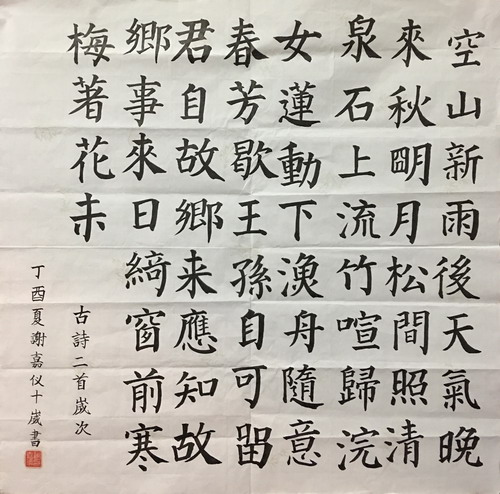 空山新雨後天氣晚
來秋明月松間照清
泉石上流竹喧歸浣
女蓮動下漁舟隨意
春芳歇王孫自可留
君自故鄉来應知故
鄉事來日綺窗前寒
梅著花未
古詩二首歲次
丁酉夏謝嘉仪十歲書